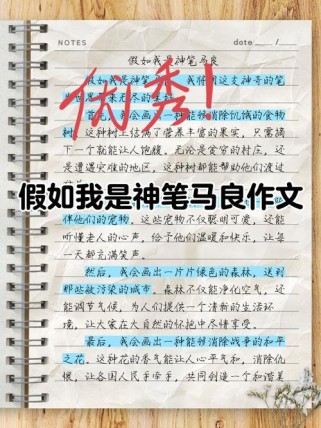 NOTES
date
假如我是神笔马良
假如我是神笔
我将用这支神奇的笔
优秀!
首先,我会画一种能够消除饥饿的食物
树。这种树上结满了营养丰富的果实,只需摘
下一个就能让人饱腹。无论是贫穷的村庄,还
是遭遇灾难的地区,这种树都能帮助他们渡过
假如我是神笔马良作文
伴他们的宠物。这些宠物不仅聪明可爱,还能
听懂老人的心声,给予他们温暖和快乐,让每
一天都充满笑声。
然后,我会画出一片片绿色的森林,送到
那些被污染的城市。森林不仅能净化空气,还
能调节气候,为人们提供一个清新的生活环
境,让大家在大自然的怀抱中尽情享受。
最后,我会画出一种能够消除战争的和平
之花。这种花的香气能让人心平气和,消除仇
恨,让各国人民手牵手,共同创造一个和谐美